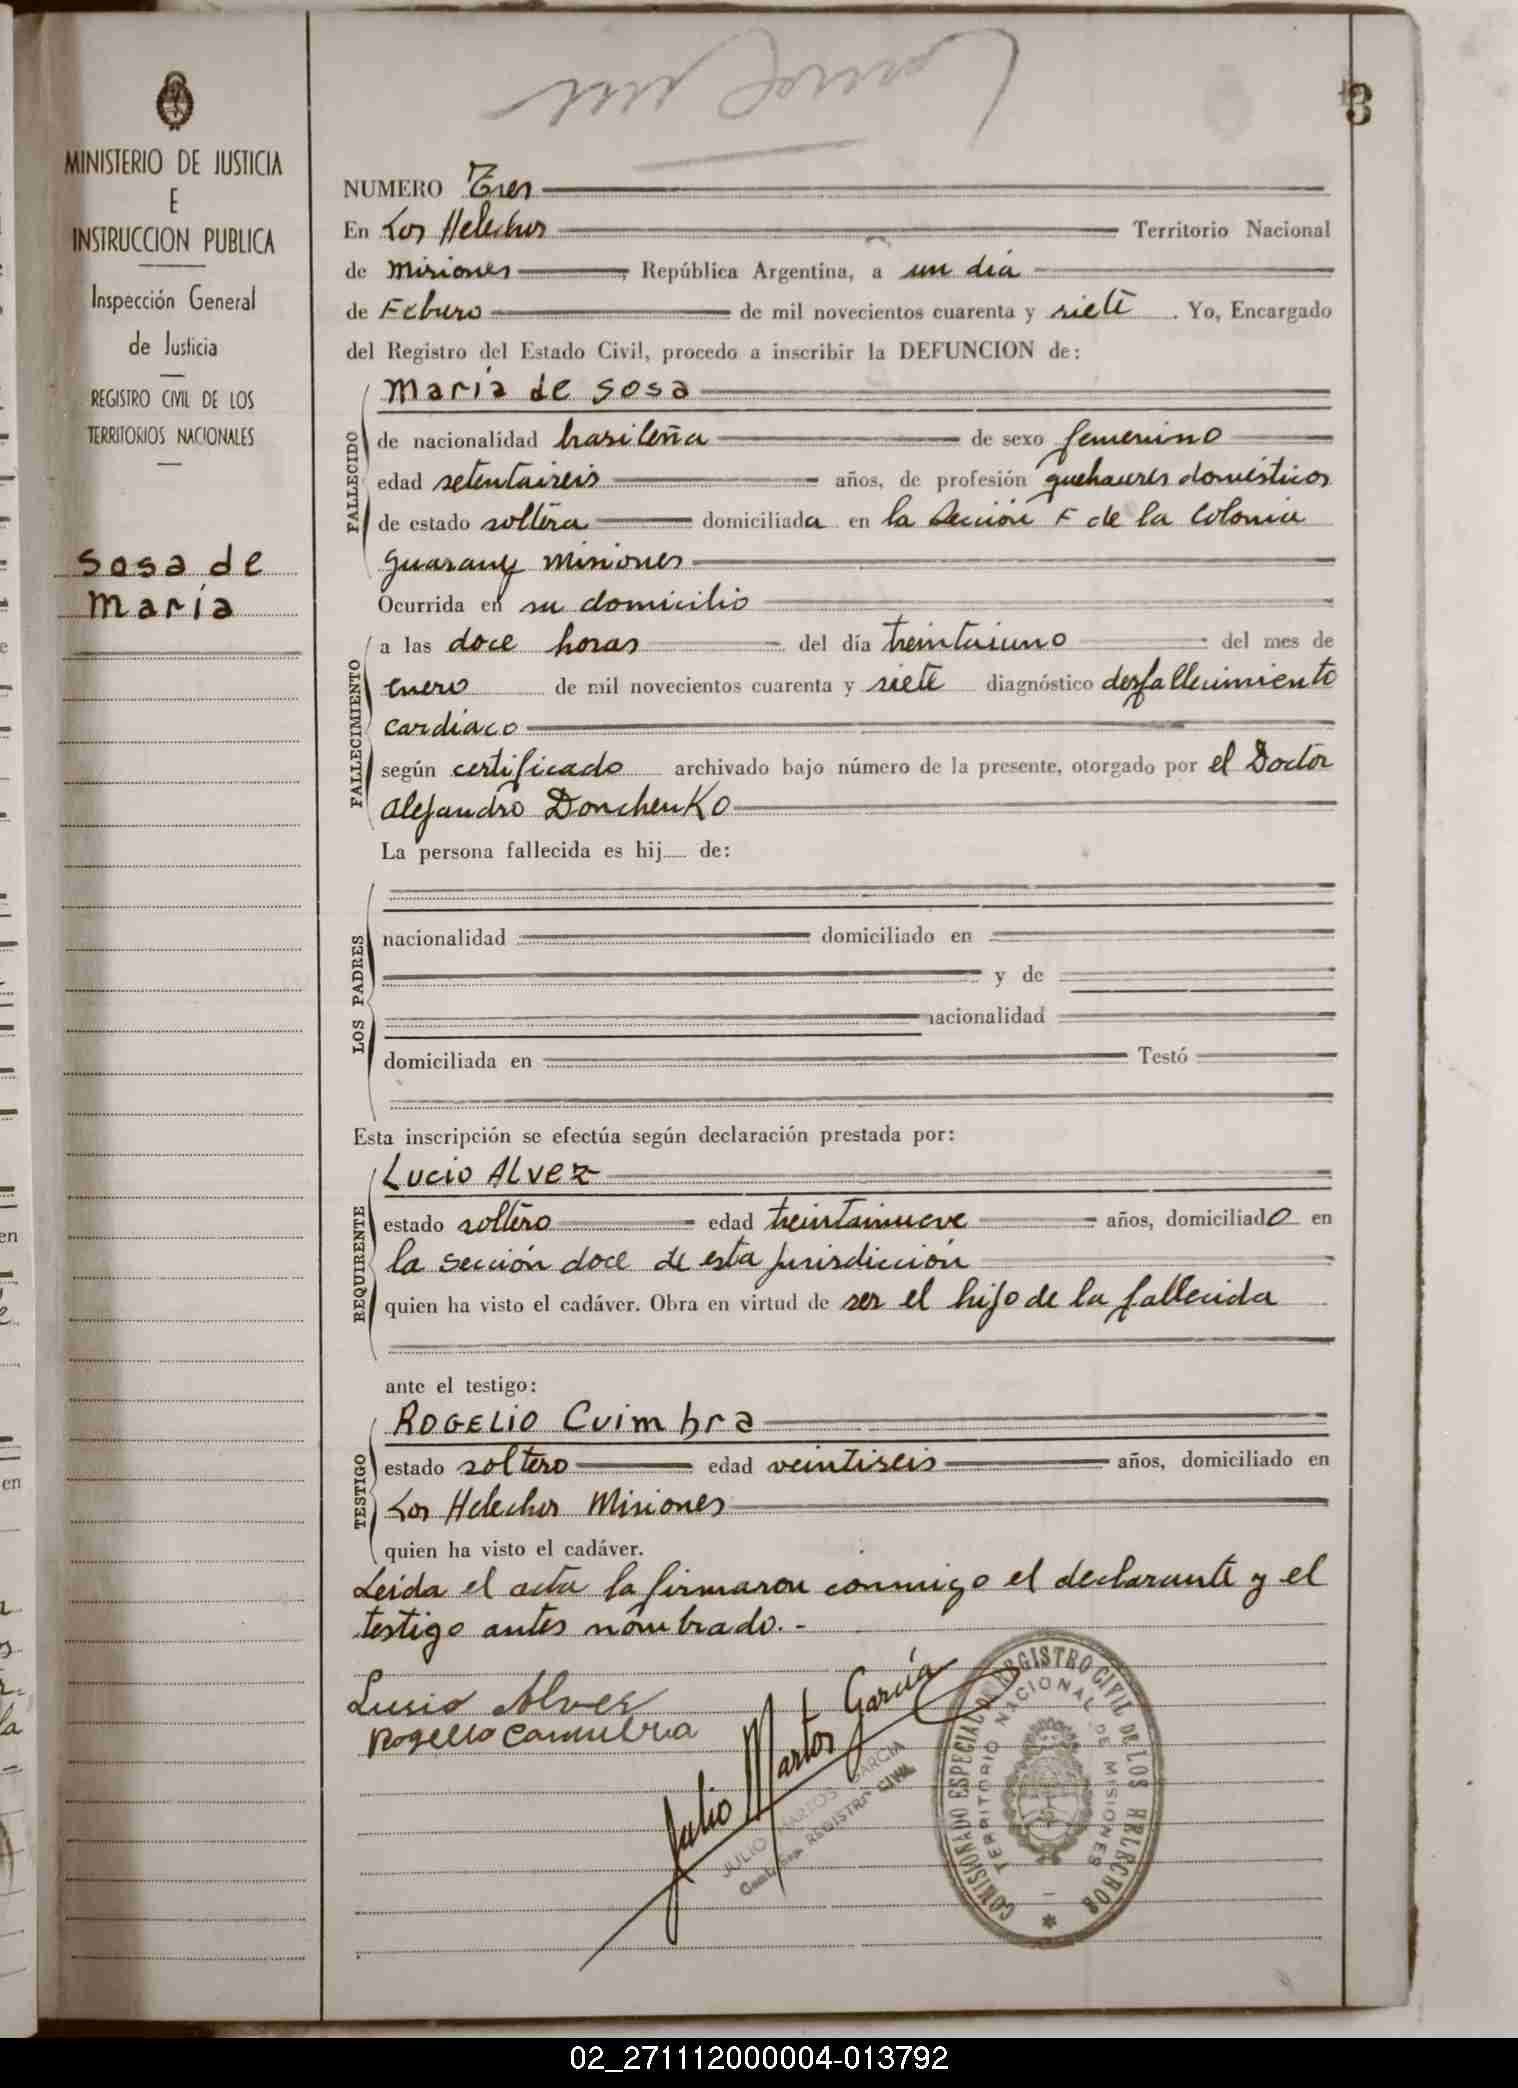 3
MINISTERIO DE JUSTICIA
E
INSTRUCCION PUBLICA
Inspección General
de Justicia
REGISTRO CIVIL DE LOS
TERRITORIOS NACIONALES
Sosa de
María
NUMERO Tres
En Los Helechos Territorio Nacional
de Misiones, República Argentina, a un día
de Febrero de mil novecientos cuarenta y siete. Yo, Encargado
del Registro del Estado Civil, procedo a inscribir la DEFUNCION de:
María de Sosa
FALLECIDO
de nacionalidad brasileña de sexo femenino
edad setentaiseis años, de profesión quehaceres domésticos
de estado soltera domiciliada en la Sección F de la Colonia
Guarany Misiones
Ocurrida en su domicilio
FALLECIMIENTO
a las doce horas del día treintaiuno del mes de
Enero de mil novecientos cuarenta y siete diagnóstico desfallecimiento
cardíaco
según certificado archivado bajo número de la presente, otorgado por el Doctor
Alejandro Donchenko
La persona fallecida es hij de:
LOS PADRES
nacionalidad domiciliado en
y de
nacionalidad
domiciliada en Testó
Esta inscripción se efectúa según declaración prestada por:
Lucio Alvez
REQUIRENTE
estado soltero edad treintainueve años, domiciliado en
la sección doce de esta jurisdicción
quien ha visto el cadáver. Obra en virtud de ser el hijo de la fallecida
ante el testigo:
Rogelio Cuimbra
TESTIGO
estado soltero edad veintiseis años, domiciliado en
Los Helechos Misiones
quien ha visto el cadáver.
Leída el acta la firmaron conmigo el declarante y el
testigo antes nombrado.-
Lusio Alves
Rogelio
Julio Martos García
JULIO MARTOS GARCIA
REGISTRO CIVIL
COMISIONADO ESPECIAL DE REGISTRO CIVIL DE LOS HELECHOS
TERRITORIO NACIONAL DE MISIONES
02_271112000004-013792